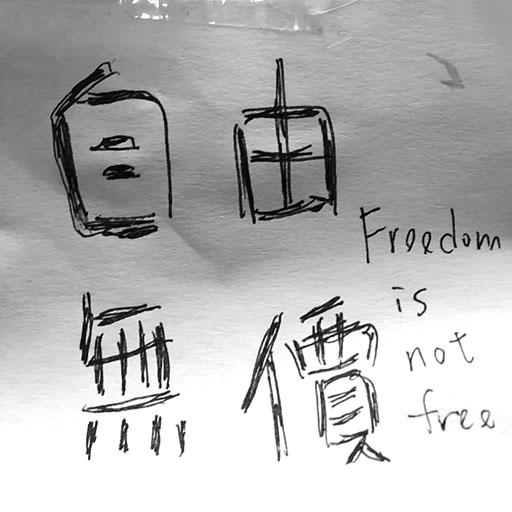 自由
無價
Freedom
is
not
free